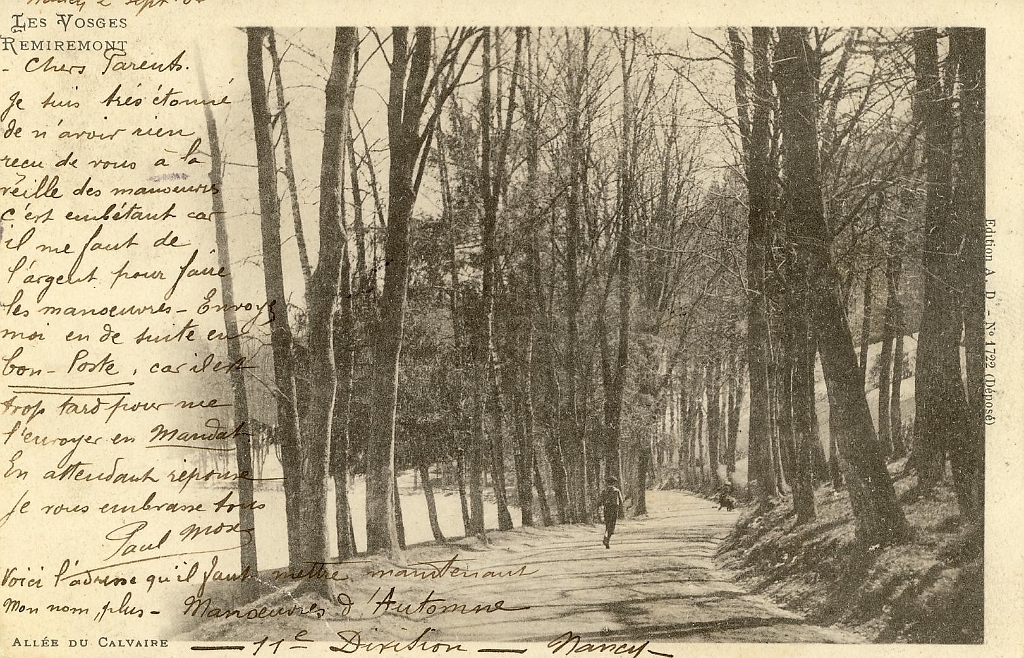 Nancy 2 Sept.
LES VOSGES
REMIREMONT
- Chers Parents.
Je suis très étonné
de n'avoir rien
reçu de vous à la
veille des manœuvres
c'est embêtant car
il me faut de
l'argent pour faire
les manœuvres - Envoyez
moi en de suite en
bon-Poste, car il est
trop tard pour me
l'envoyer en Mandat
En attendant réponse
Je vous embrasse tous
Paul
Voici l'adresse qu'il faut mettre maintenant
mon nom, plus - Manœuvres d'Automne
— 11e Division — Nancy —
ALLÉE DU CALVAIRE
Edition A. D. - No 1722 (Déposé)